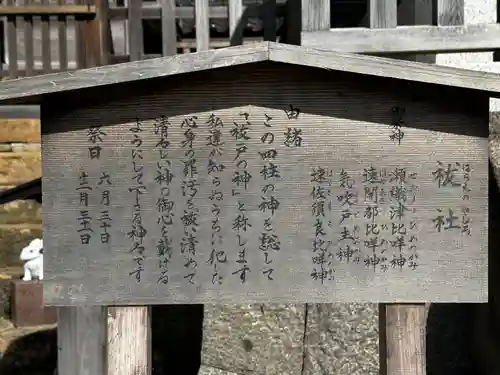 はらえのやしろ
祓社
御祭神
せおりつひめのかみ
瀬織津比咩神
はやあきつひめのかみ
速開都比咩神
いぶきどぬしのかみ
気吹戸主神
はやさすらひめのかみ
速佐須良比咩神
由緒
この四柱の神を総して
「祓戸の神」と称します
私達が知らぬうちに犯した
心身の罪汚を祓い清めて
清らしい神の御心を戴ける
ようにして下さる神名です
祭日
六月三十日
十二月三十一日